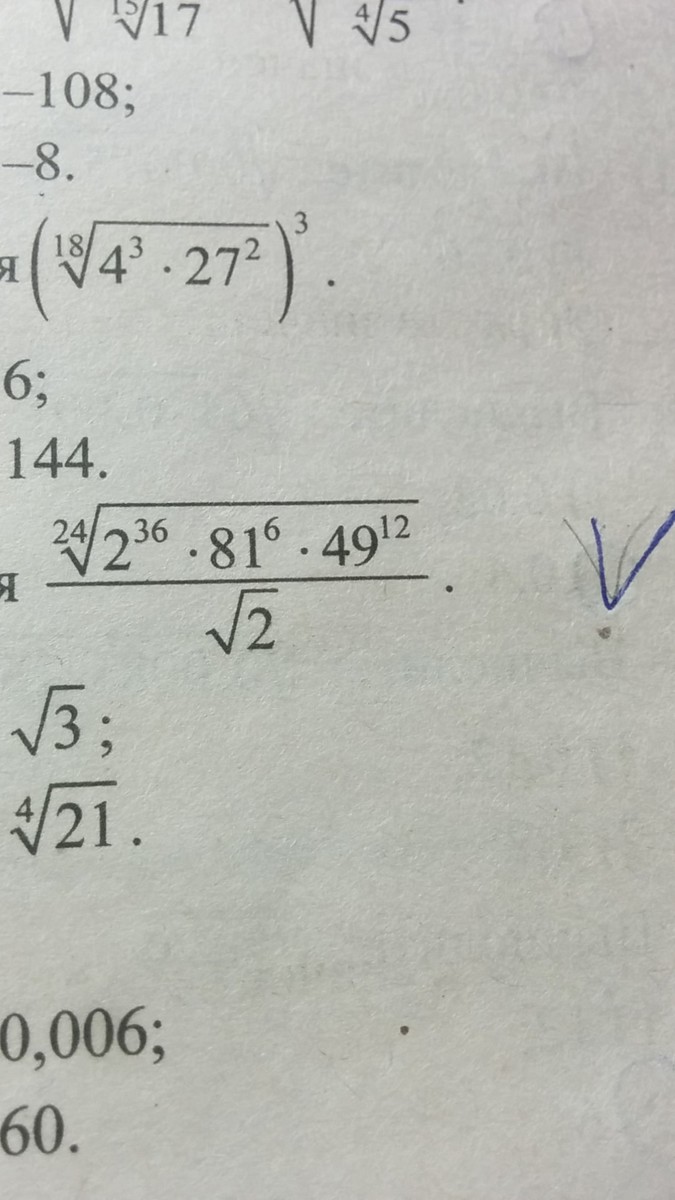 √ ¹⁵√17 √ ⁴√5
–108;
–8.
я (¹⁸√(4³ · 27²))³.
6;
144.
я ²⁴√(2³⁶ · 81⁶ · 49¹²) / √2.
√3;
⁴√21.
0,006;
60.